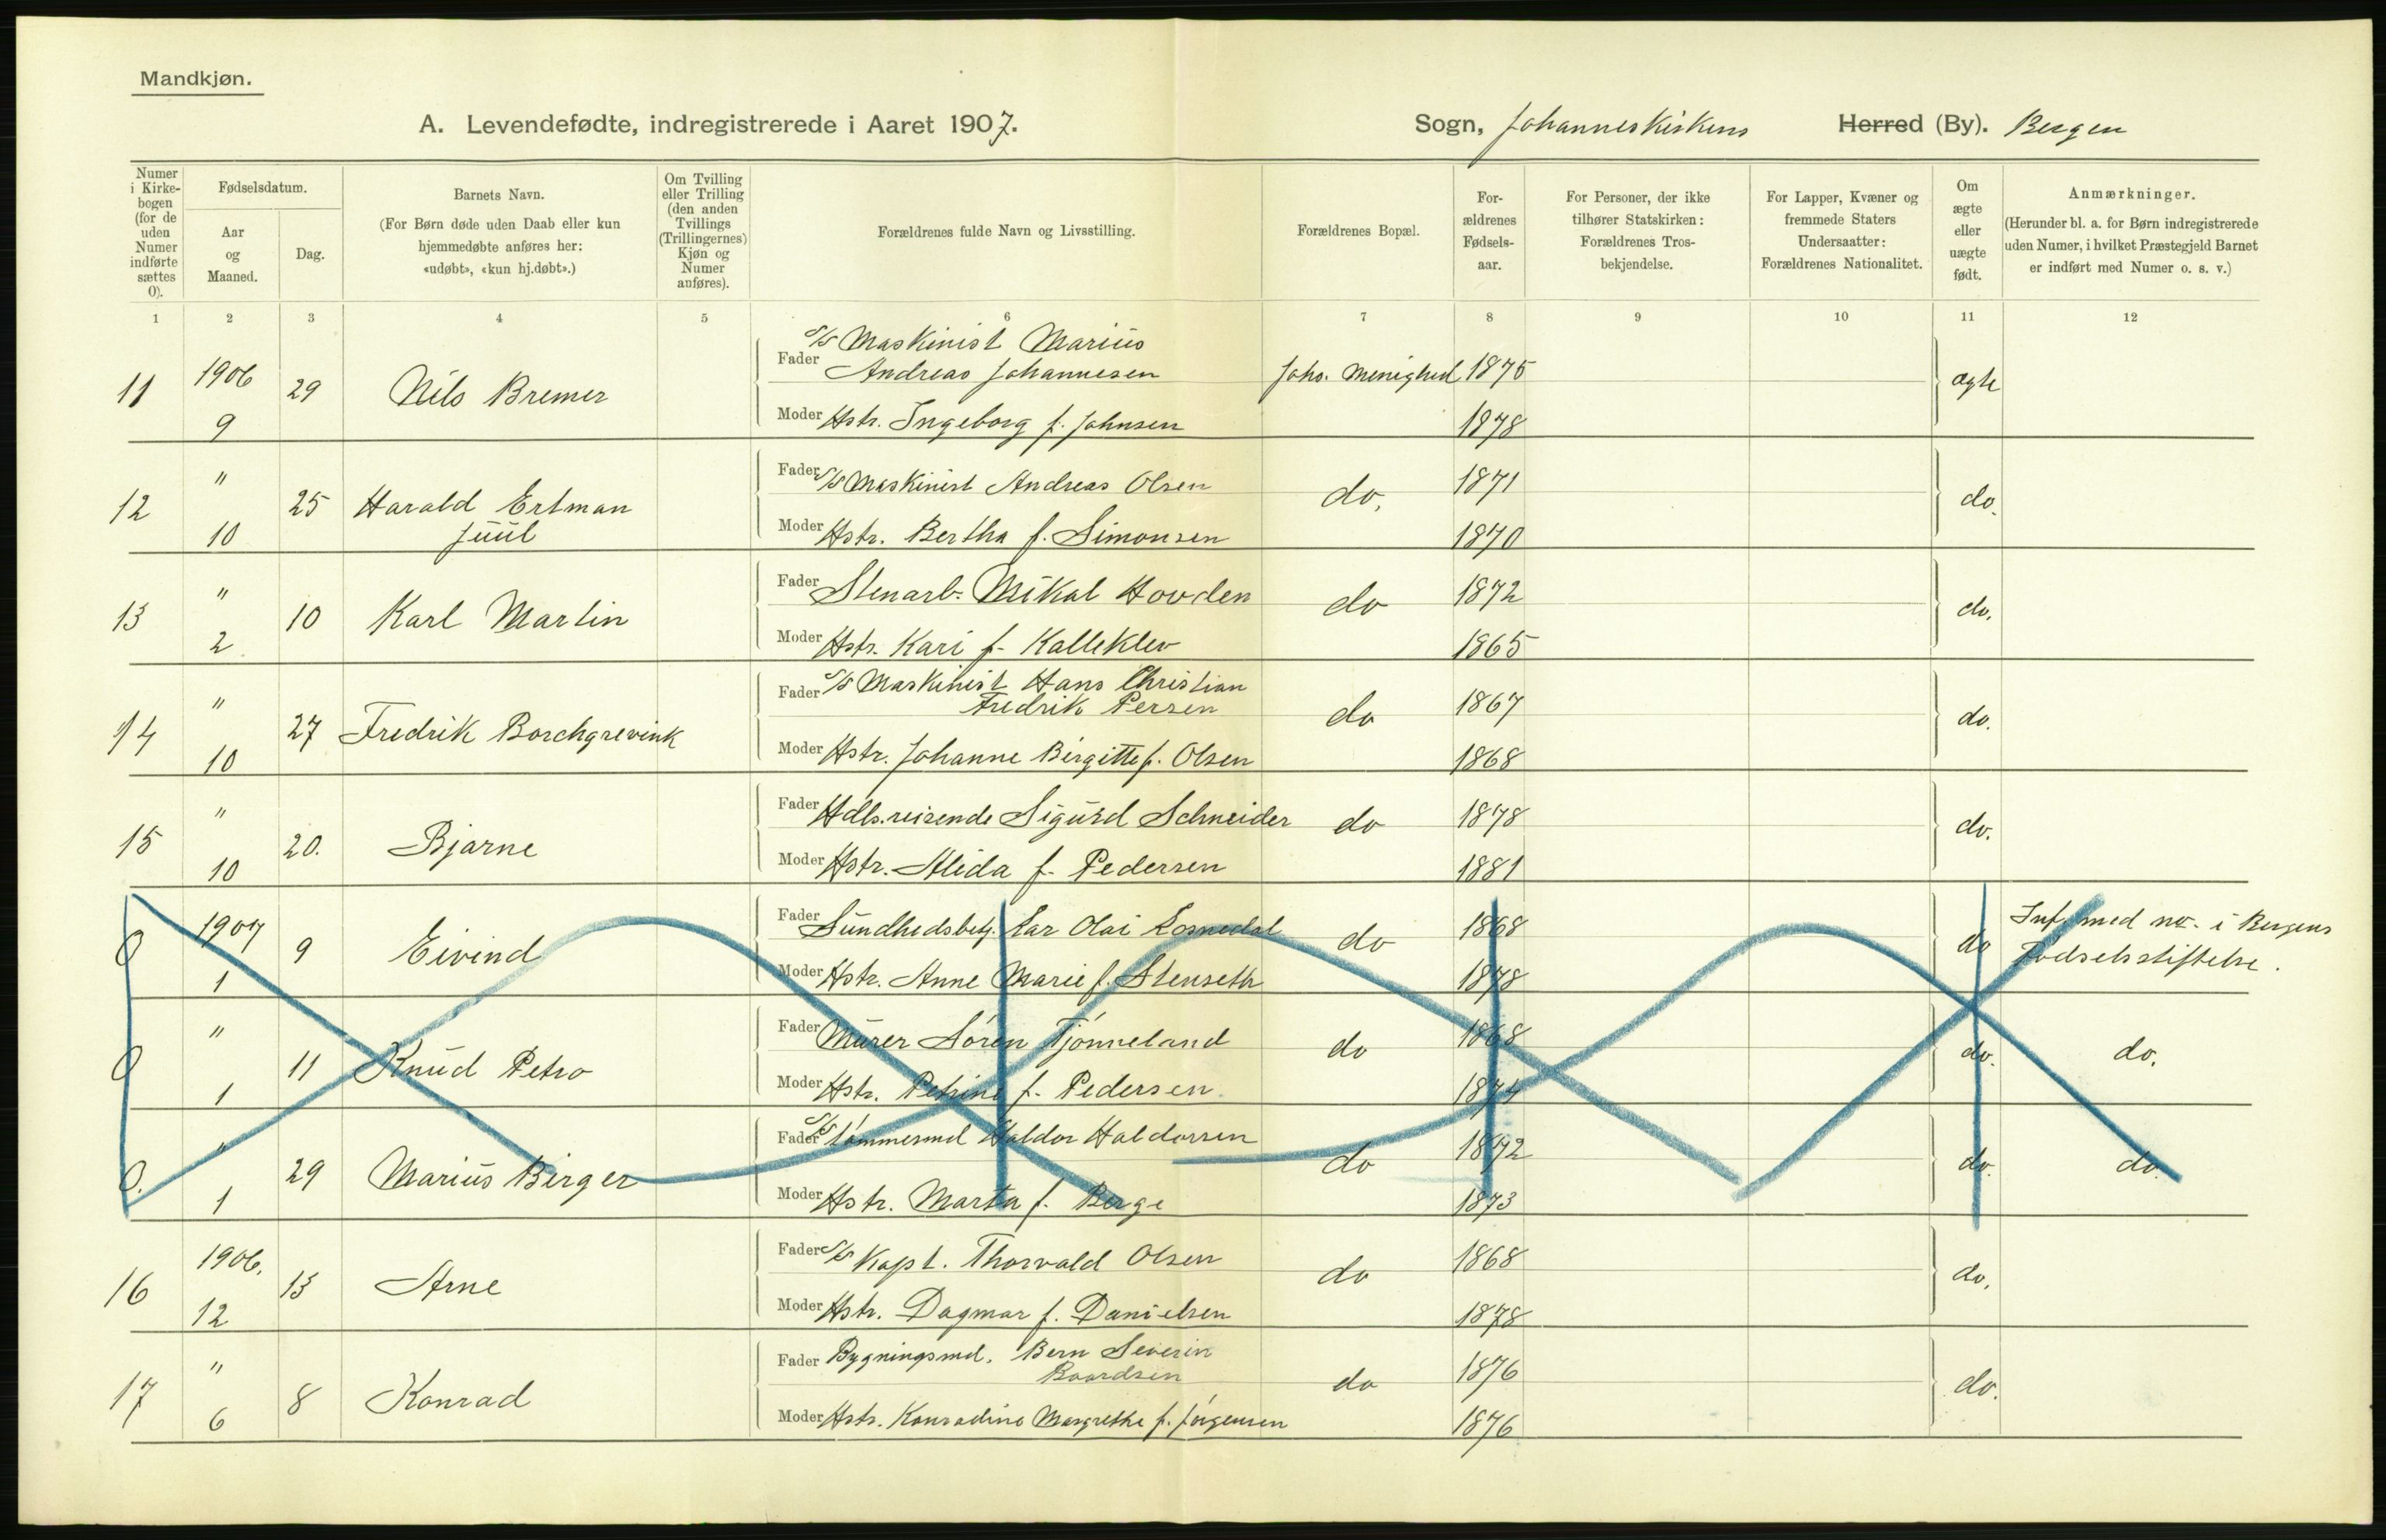 Mandkjøn.
A. Levendefødte, indregistrerede i Aaret 1907.
Sogn, Johanneskirkens Herred (By). Bergen
Numer i Kirkebogen (for de uden Numer indførte sættes 0).
Fødselsdatum.
Aar og Maaned.
Dag.
Barnets Navn.
(For Børn døde uden Daab eller kun hjemmedøbte anføres her: «udøbt», «kun hj.døbt».)
Om Tvilling eller Trilling (den anden Tvillings (Trillingernes) Kjøn og Numer anføres).
Forældrenes fulde Navn og Livsstilling.
Forældrenes Bopæl.
Forældrenes Fødselsaar.
For Personer, der ikke tilhører Statskirken: Forældrenes Trosbekjendelse.
For Lapper, Kvæner og fremmede Staters Undersaatter: Forældrenes Nationalitet.
Om ægte eller uægte født.
Anmærkninger.
(Herunder bl. a. for Børn indregistrerede uden Numer, i hvilket Præstegjeld Barnet er indført med Numer o. s. v.)
1 2 3 4 5 6 7 8 9 10 11 12
11 1906 9 29 Nils Bremer
Fader S/S Maskinist Marius Andreas Johannesen Johs. Menighed 1875 ægte
Moder Hstr. Ingeborg f. Johnsen 1878
12 " 10 25 Harald Ertman Juul
Fader S/S Maskinist Andreas Olsen do. 1871 do.
Moder Hstr. Bertha f. Simonsen 1870
13 " 2 10 Karl Martin
Fader Stenarb. Mikal Hovden do 1872 do.
Moder Hstr. Kari f. Kalleklev 1865
14 " 10 27 Fredrik Borchgrevink
Fader S/S Maskinist Hans Christian Fredrik Persen do 1867 do.
Moder Hstr. Johanne Birgitte f. Olsen 1868
15 " 10 20. Bjarne
Fader Hdls.reisende Sigurd Schneider do 1878 do.
Moder Hstr. Alida f. Pedersen 1881
0 1907 1 9 Eivind
Fader Sundhedsbetj. Lar Olai do 1868 do Inf. med no. i Bergens Fødselsstiftelse.
Moder Hstr. Anne Marie f. Stenseth 1878
0 " 1 11 Knud Petro
Fader Murer Sören Tjönneland do 1868 do. do.
Moder Hstr. Petrine f. Pedersen. 1874
0. " 1 29 Marius Birger
Fader S/S Tömmermd Haldor Haldorsen do 1872 do. do.
Moder Hstr. Marta f. Berge 1873
16 1906. 12 13 Arne
Fader S/S Kapt. Thorvald Olsen do 1868 do.
Moder Hstr. Dagmar f. Danielsen 1878
17 " 6 8 Konrad
Fader Bygningsmd. Bern Severin Baardsen do 1876 do.
Moder Hstr. Konradine Margrethe f. Jörgensen 1876